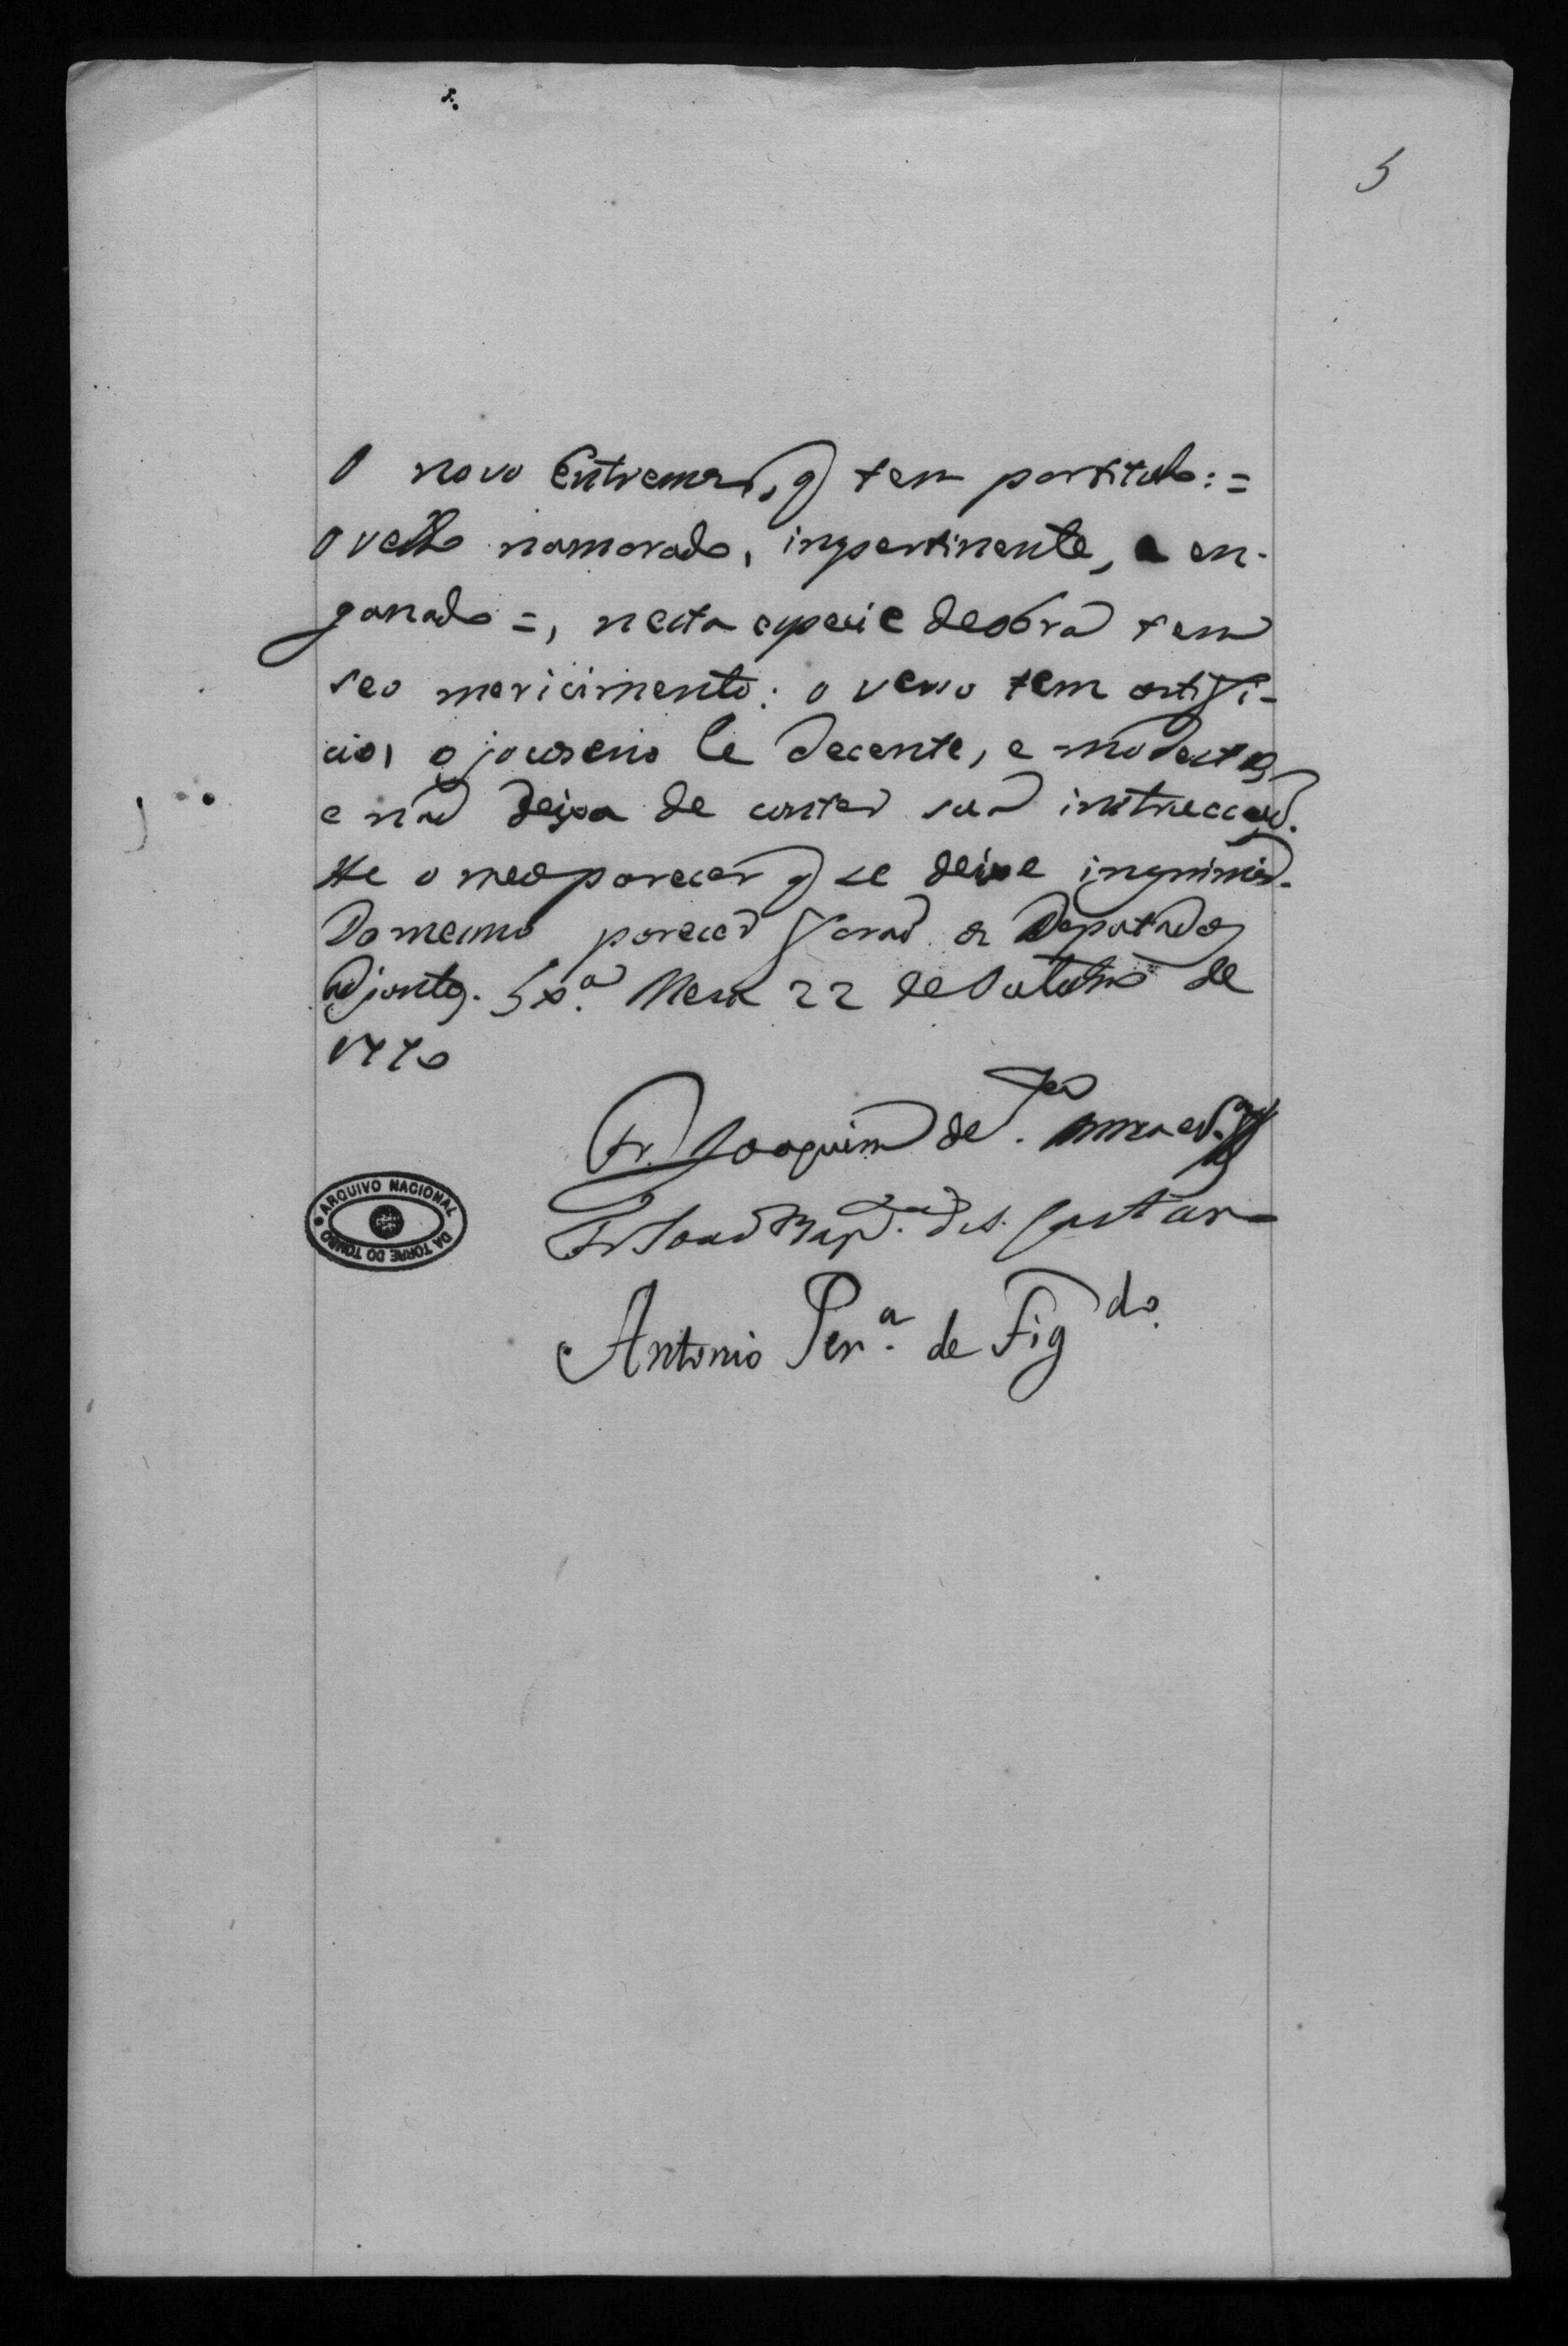 5
O novo Entremes, q tem por titulo: =
O velho namorado, impertinente, e en-
ganado =, nesta especie de obra tem
seo mericimento: o verso tem artifi-
cio, o jocoserio he decente, e modesto,
e naõ deixa de conter sua instrucçaõ.
He o meo parecer q se deixe imprimir.
Do mesmo parecer foraõ os Deputados
Adjuntos. Lxª. Mesa 22 de Outubro de
1770
Fr. Joaquim de
Fr. Joaõ Bapᵗᵃ. de S. Caetano
Antonio Perª. de Figᵈᵒ.
ARQUIVO NACIONAL
DA TORRE DO TOMBO